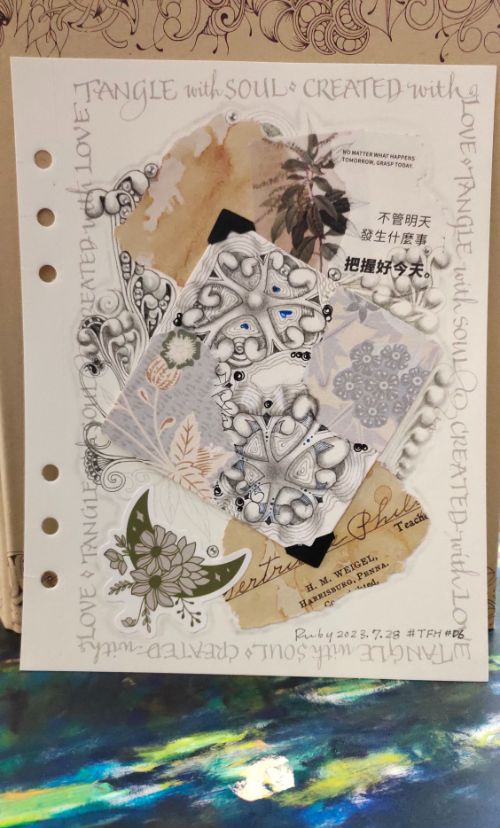 TANGLE with SOUL ⋄ CREATED with
LOVE ⋄ TANGLE with SOUL
CREATED with LOVE
TANGLE with SOUL ⋄ CREATED with
LOVE ⋄ TANGLE
CREATED with LOVE
NO MATTER WHAT HAPPENS
TOMORROW, GRASP TODAY.
不管明天
發生什麼事
把握好今天。
Teache
H. M. WEIGEL,
HARRISBURG, PENNA.
Ruby 2023.7.28 #TFH #D6